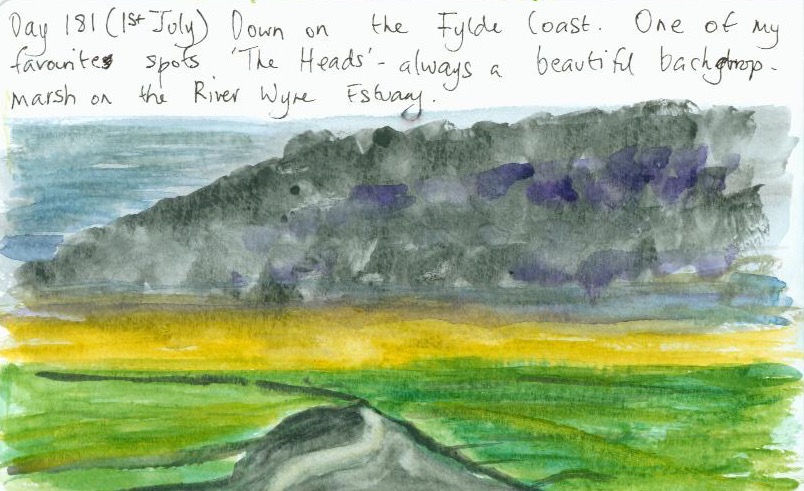 Day 181 (1st July) Down on the Fylde Coast. One of my
favourites spots 'The Heads' - always a beautiful backdrop.
marsh on the River Wyre Estuary.